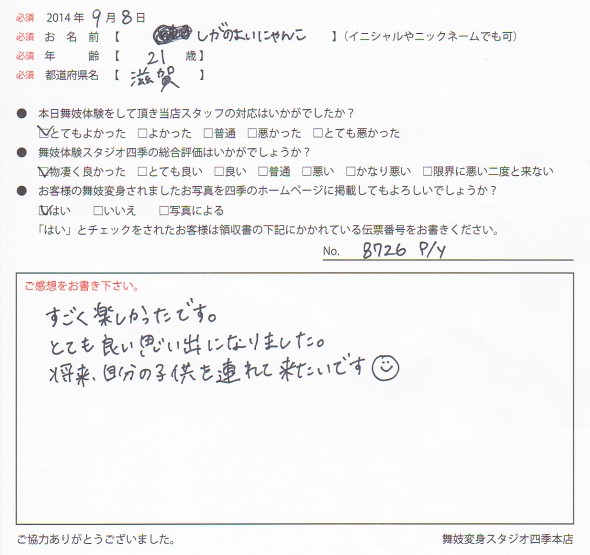 必須 2014年 9月 8日
必須 お名前【 しがのまいにゃんこ 】(イニシャルやニックネームでも可)
必須 年齢【 21 歳】
必須 都道府県名【 滋賀 】
● 本日舞妓体験をして頂き当店スタッフの対応はいかがでしたか?
☑とてもよかった □よかった □普通 □悪かった □とても悪かった
● 舞妓体験スタジオ四季の総合評価はいかがでしょうか?
☑物凄く良かった □とても良い □良い □普通 □悪い □かなり悪い □限界に悪い二度と来ない
● お客様の舞妓変身されましたお写真を四季のホームページに掲載してもよろしいでしょうか?
☑はい □いいえ □写真による
「はい」とチェックをされたお客様は領収書の下記にかかれている伝票番号をお書きください。
No. 8726 P/Y
ご感想をお書き下さい。
すごく楽しかったです。
とても良い思い出になりました。
将来、自分の子供を連れて来たいです
ご協力ありがとうございました。 舞妓変身スタジオ四季本店